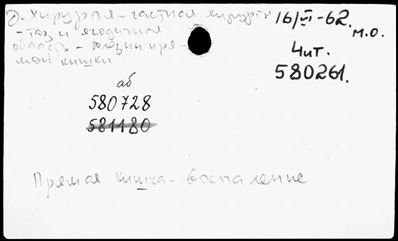 О-хирургия-частная хирургия
-таз и ягодичная
область-болезни пря-
мой кишки
16/VI-62.
м.о.
Чит.
580261.
аб
580728
581180
Прямая кишка-воспаление